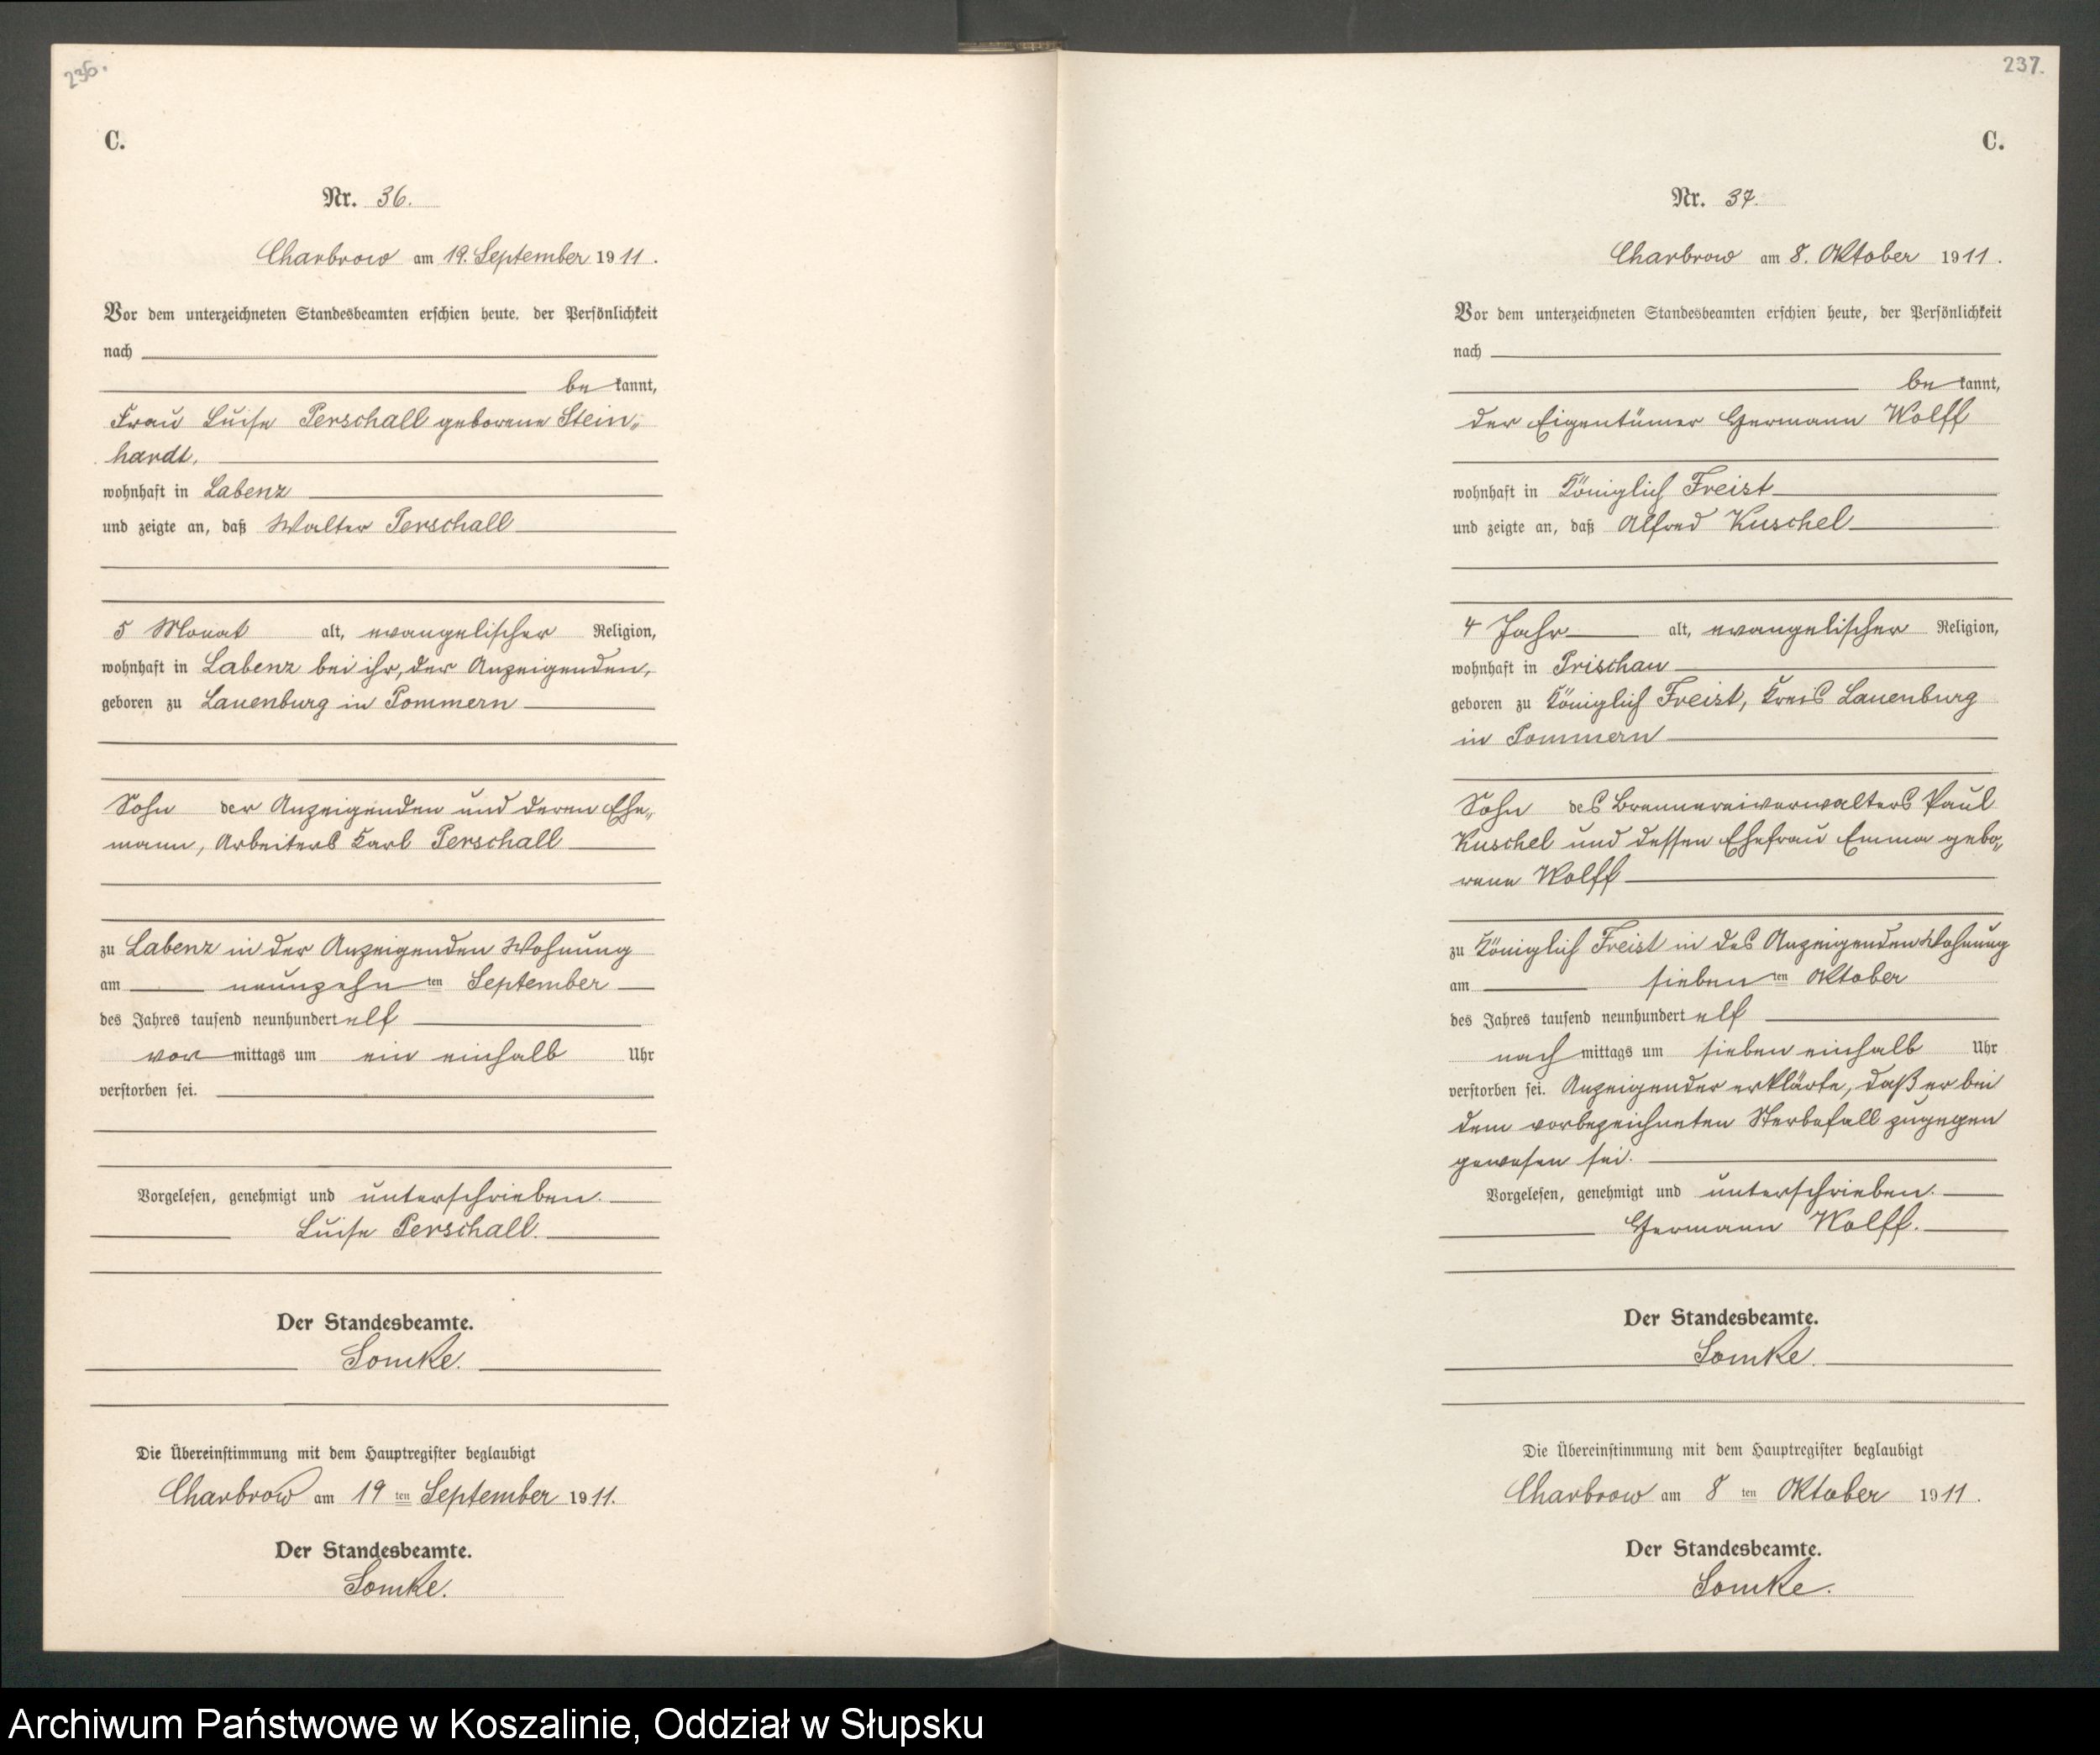 236.
C.
Nr. 36.
Charbrow am 19. September 1911.
Vor dem unterzeichneten Standesbeamten erschien heute, der Persönlichkeit
nach
be kannt,
Frau Luise Perschall geborene Stein-
hardt,
wohnhaft in Labenz
und zeigte an, daß Walter Perschall
5 Monat alt, evangelischer Religion,
wohnhaft in Labenz bei ihr, der Anzeigenden,
geboren zu Lauenburg in Pommern
Sohn der Anzeigenden und deren Ehe-
mann, Arbeiters Karl Perschall
zu Labenz in der Anzeigenden Wohnung
am neunzehn ten September
des Jahres tausend neunhundert elf
vor mittags um ein einhalb Uhr
verstorben sei.
Vorgelesen, genehmigt und unterschrieben.
Luise Perschall.
Der Standesbeamte.
Lomke.
Die Übereinstimmung mit dem Hauptregister beglaubigt
Charbrow am 19 ten September 1911.
Der Standesbeamte.
Lomke.
237.
C.
Nr. 37.
Charbrow am 8. Oktober 1911.
Vor dem unterzeichneten Standesbeamten erschien heute, der Persönlichkeit
nach
be kannt,
der Eigentümer Hermann Wolff
wohnhaft in Königlich Freist
und zeigte an, daß Alfred Kuschel
4 Jahr alt, evangelischer Religion,
wohnhaft in Prischau
geboren zu Königlich Freist, Kreis Lauenburg
in Pommern
Sohn des Brennereiverwalters Paul
Kuschel und dessen Ehefrau Emma gebo-
rene Wolff
zu Königlich Freist in des Anzeigenden Wohnung
am sieben ten Oktober
des Jahres tausend neunhundert elf
nach mittags um sieben einhalb Uhr
verstorben sei. Anzeigender erklärte, daß er bei
dem vorbezeichneten Sterbefall zugegen
gewesen sei.
Vorgelesen, genehmigt und unterschrieben.
Hermann Wolff.
Der Standesbeamte.
Lomke.
Die Übereinstimmung mit dem Hauptregister beglaubigt
Charbrow am 8 ten Oktober 1911.
Der Standesbeamte.
Lomke.
Archiwum Państwowe w Koszalinie, Oddział w Słupsku